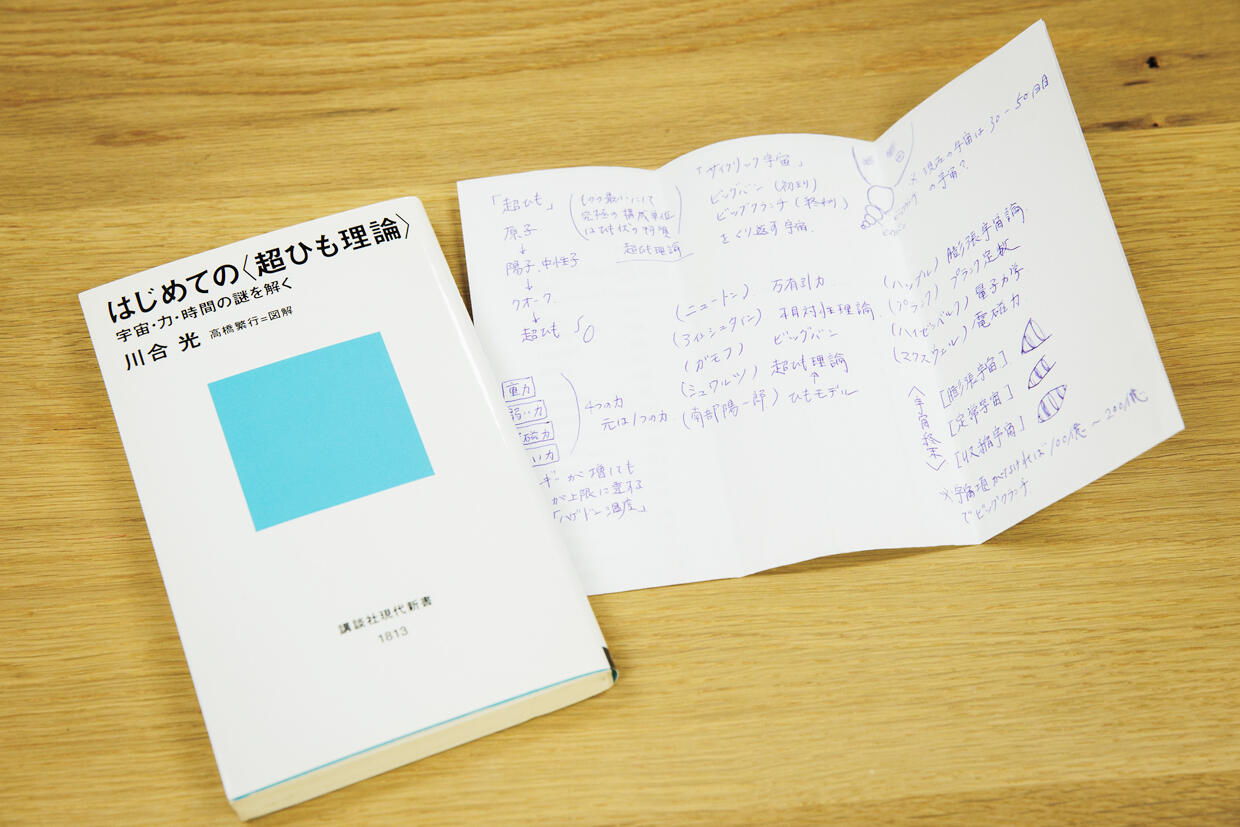 はじめての〈超ひも理論〉
宇宙・力・時間の謎を解く
川合 光 高橋繁行=図解
講談社現代新書
1813
「超ひも」
究極の構成単位
はひも状の物質
超ひも理論
原子
↓
陽子、中性子
↓
クオーク
↓
超ひも
重力
弱い力
磁力
い力
4つの力
元は1つの力
ギーが増しても
が上限に達する
「ハゲドーン温度」
「サイクリック宇宙」
ビッグバン(初まり)
ビッグクランチ(終わり)
をくり返す宇宙
(ニュートン) 万有引力
(アインシュタイン) 相対性理論
(ガモフ) ビッグバン
(シュワルツ) 超ひも理論
↑
(南部陽一郎) ひもモデル
※現在の宇宙は30〜50回目
の宇宙?
ビッグバン
(ハッブル) 膨張宇宙論
(プランク) プランク定数
(ハイゼンベルク) 量子力学
(マクスウェル) 電磁力
〈宇宙終末〉
[膨張宇宙]
[定常宇宙]
[収縮宇宙]
※宇宙項がなければ100億〜200億
でビッグクランチ